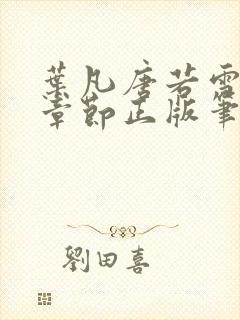 葉凡唐若雪
章節正版筆
劉田喜